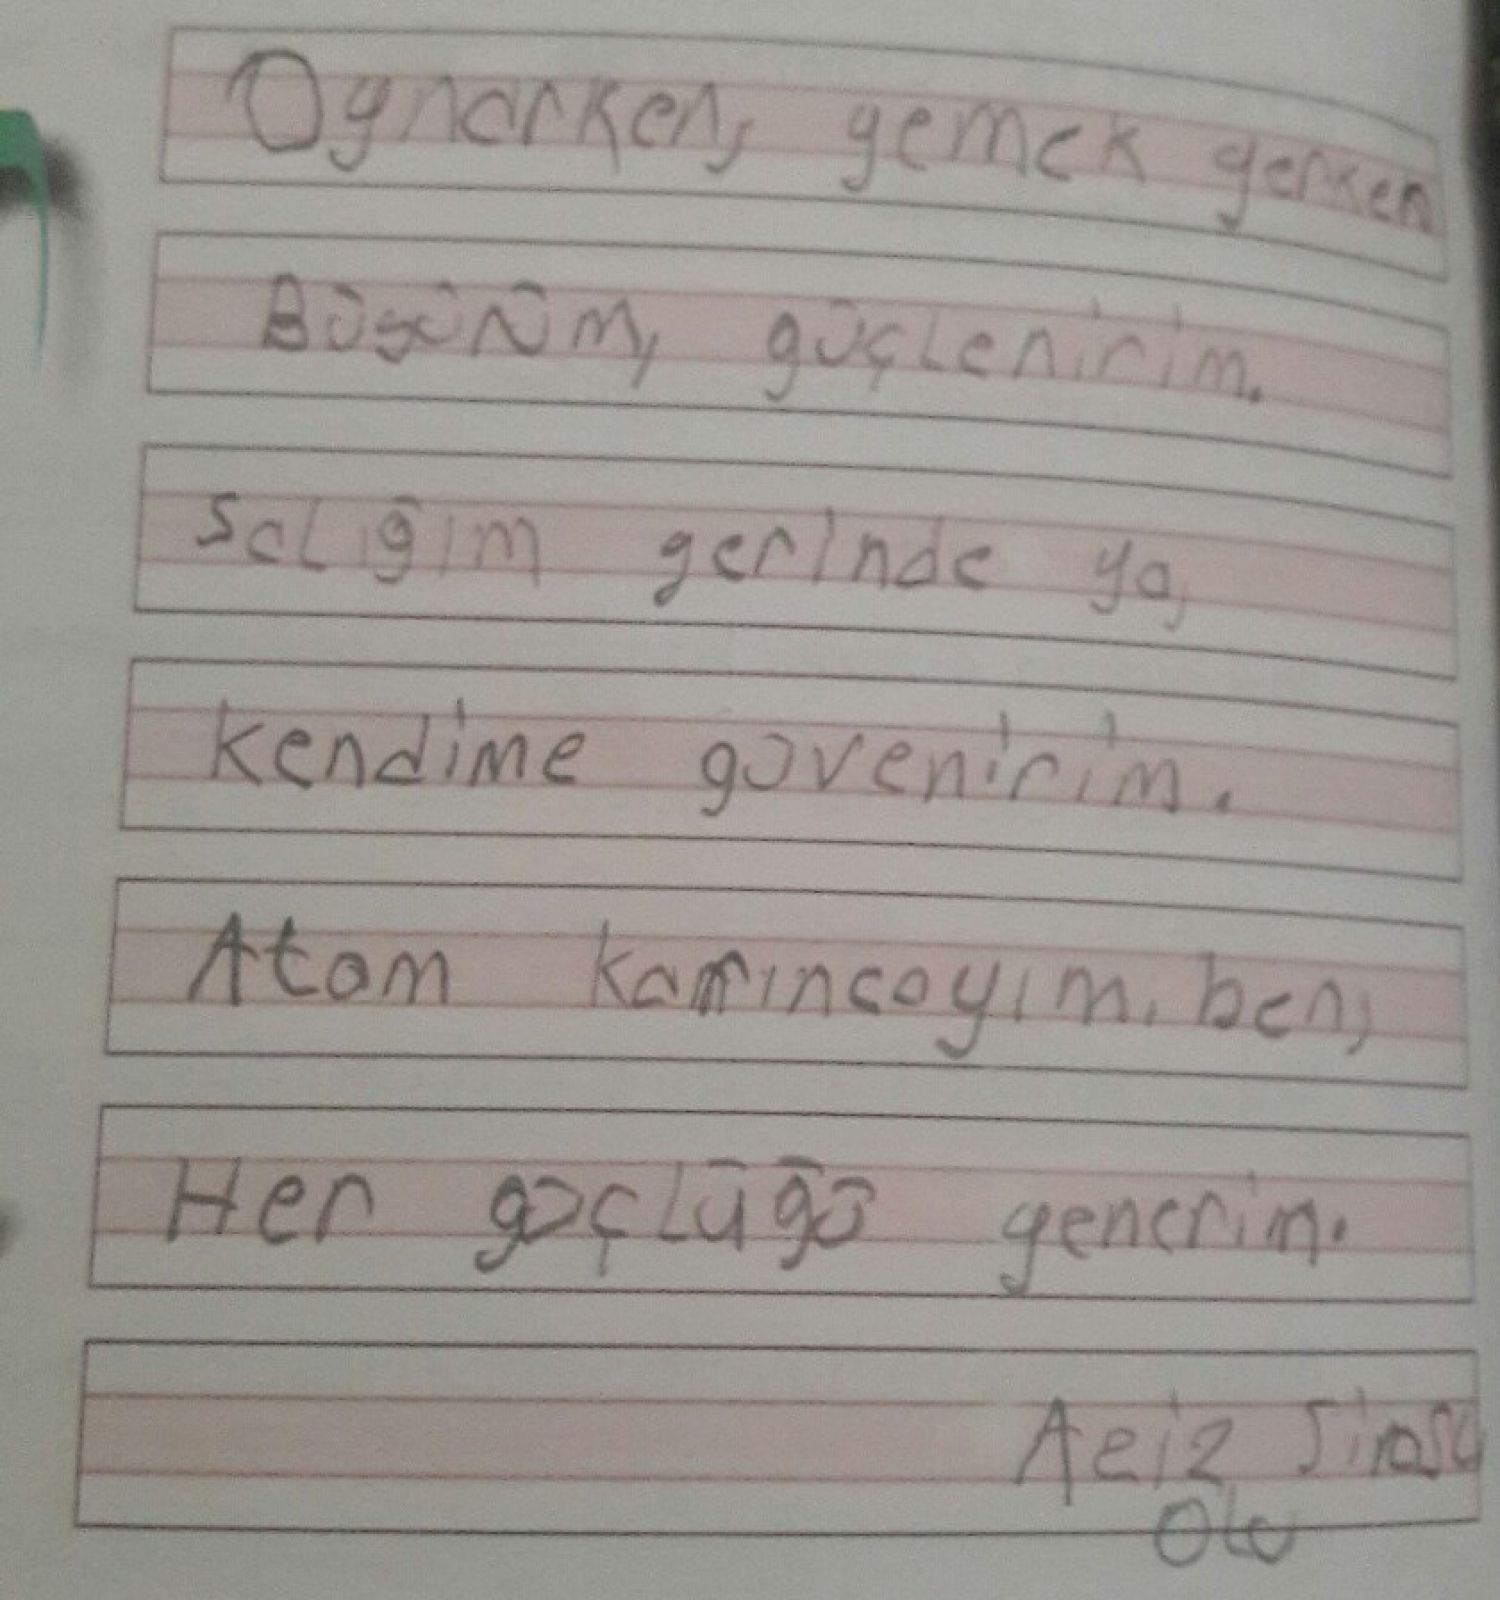 Oynarken, yemek yerken
Büyürüm, güçlenirim.
Salığım yerinde ya,
kendime güvenirim.
Atom karıncayım ben,
Her güçlüğü yenerim.